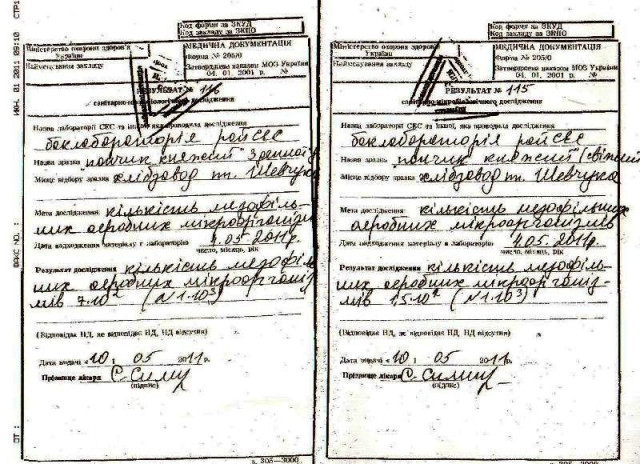 Код форми за ЗКУД
Код закладу за ЗКПО
Міністерство охорони здоров'я
України
Найменування закладу
МЕДИЧНА ДОКУМЕНТАЦІЯ
Форма № 205/0
Затверджена наказом МОЗ України
04. 01. 2001 р. №
РЕЗУЛЬТАТ № 116
санітарно-мікробіологічного дослідження
Назва лабораторії СЕС та іншої, яка проводила дослідження
баклабораторія райСЕС
Назва зразка "пончик княжий"
Місце відбору зразка хлібзавод пп. Шевчука
Мета дослідження кількість мезофіль-
них аеробних мікроорганізмів
Дата надходження матеріалу в лабораторію 4.05.2011р.
число, місяць, рік
Результат дослідження кількість мезофіль-
них аеробних мікроорганіз-
мів 7·10² (N 1·10³)
(Відповідає НД, не відповідає НД, НД відсутня)
Дата видачі «10» 05 2011р.
Прізвище лікаря
(підпис)
Код форми за ЗКУД
Код закладу за ЗКПО
Міністерство охорони здоров'я
України
Найменування закладу
МЕДИЧНА ДОКУМЕНТАЦІЯ
Форма № 205/0
Затверджена наказом МОЗ України
04. 01. 2001 р. №
РЕЗУЛЬТАТ № 115
санітарно-мікробіологічного дослідження
Назва лабораторії СЕС та іншої, яка проводила дослідження
баклабораторія райСЕС
Назва зразка "пончик княжий" (свіжий
Місце відбору зразка хлібзавод пп. Шевчука
Мета дослідження кількість мезофільних
аеробних мікроорганізмів
Дата надходження матеріалу в лабораторію 4.05.2011р.
число, місяць, рік
Результат дослідження кількість мезофіль-
них аеробних мікроорганіз-
мів 1,5·10² (N 1·10³)
(Відповідає НД, не відповідає НД, НД відсутня)
Дата видачі «10» 05 2011р.
Прізвище лікаря
(підпис)